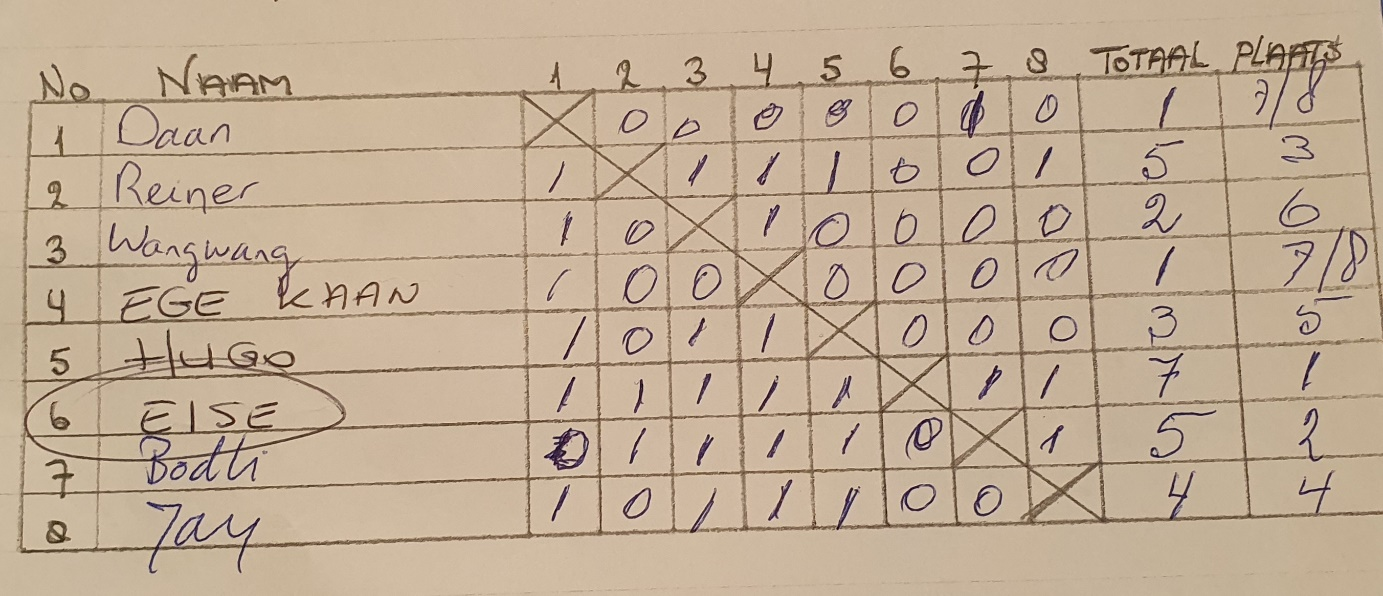 No NAAM 1 2 3 4 5 6 7 8 TOTAAL PLAATS
1 Daan 0 0 0 0 0 1 0 1 7/8
2 Reiner 1 1 1 1 0 0 1 5 3
3 Wangwang 1 0 1 0 0 0 0 2 6
4 EGE KAAN 1 0 0 0 0 0 0 1 7/8
5 HUGO 1 0 1 1 0 0 0 3 5
6 EISE 1 1 1 1 1 1 1 7 1
7 Bodhi 0 1 1 1 1 0 1 5 2
8 Jay 1 0 1 1 1 0 0 4 4